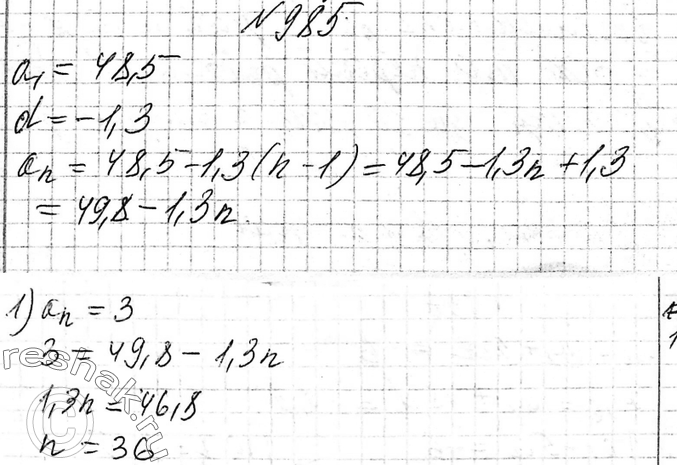 №985.
a₁ = 48,5
d = -1,3
aₙ = 48,5 - 1,3(n - 1) = 48,5 - 1,3n + 1,3
= 49,8 - 1,3n.
1) aₙ = 3
3 = 49,8 - 1,3n
1,3n = 46,8
n = 36
reshak.ru